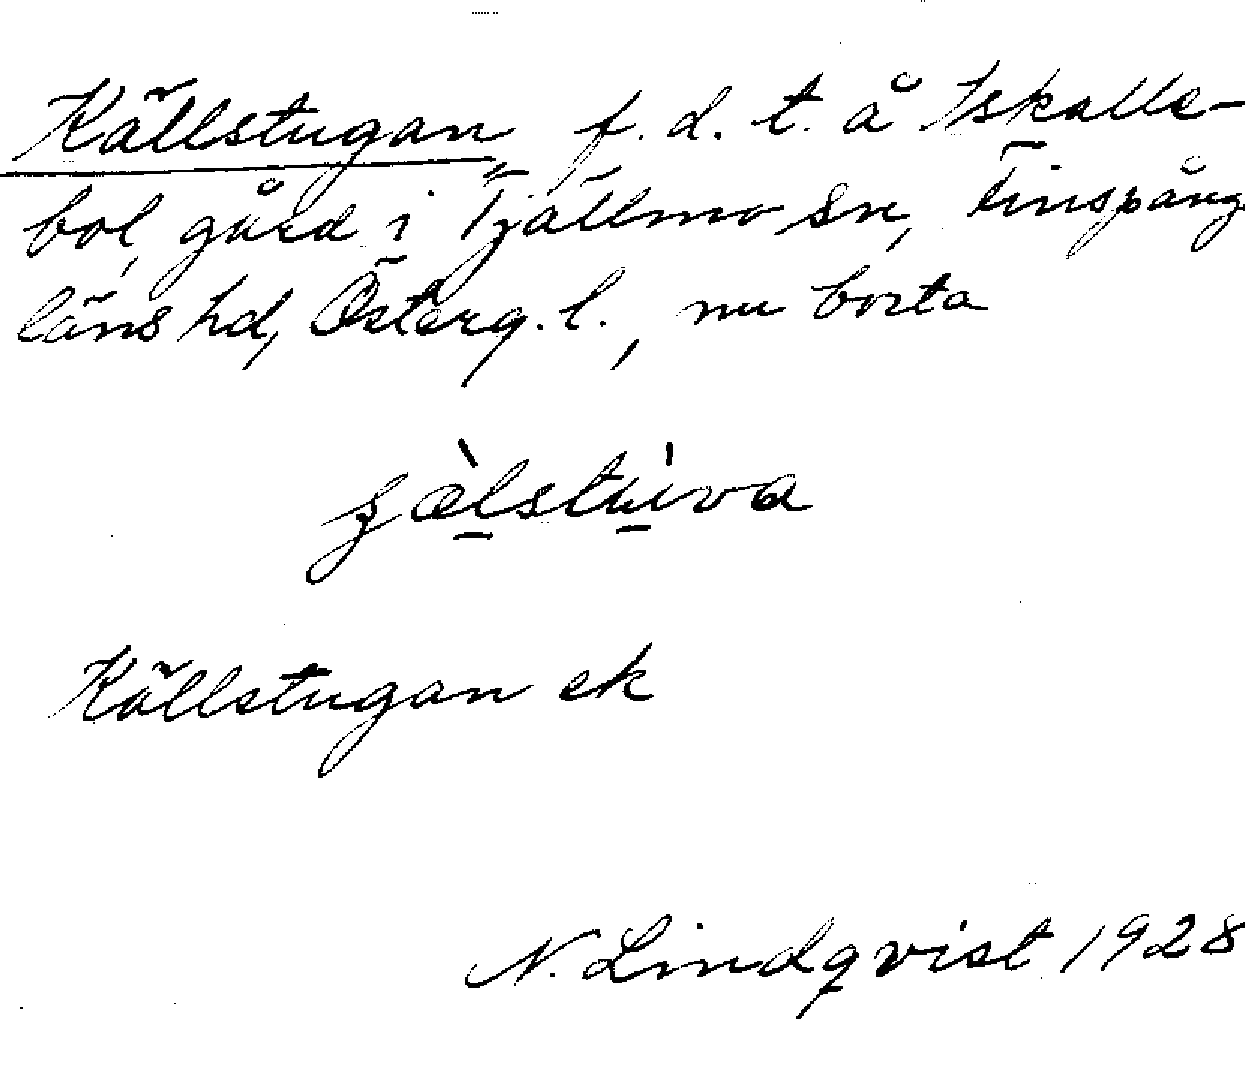 Källstugan, f. d. t. å Iskalle-
bol, gård i Tjällmo sn, Finspång
läns hd, Österg. l., nu borta
Källstugan ek
N. Lindqvist 1928